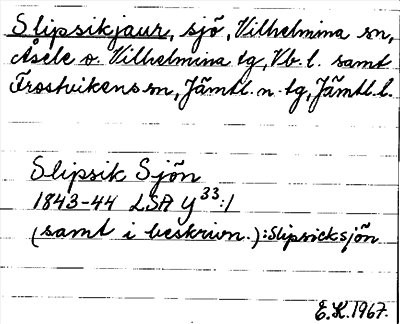 Slipsikjaur, sjö, Vilhelmina sn,
Åsele o. Vilhelmina tg, Vb. l. samt
Frostvikens sn, Jämtl. n. tg, Jämtl. l.
Slipsik Sjön
1843-44 LSA Y 33:1
(samt i beskrivn.): Slipsicksjön
E.K. 1967.